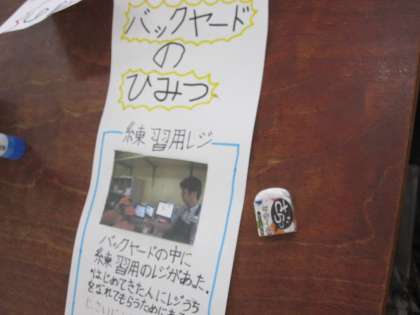 バックヤード
の
ひみつ
練習用レジ
バックヤードの中に
練習用のレジがあった。
はじめてきた人にレジうち
をなれてもらうために